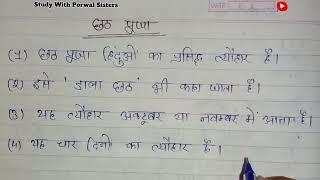 Study With Porwal Sisters
छठ पूजा
(1) छठ पूजा हिंदुओं का प्रसिद्ध त्यौहार है।
(2) इसे 'डाला छठ' भी कहा जाता है।
(3) यह त्यौहार अक्टूबर या नवम्बर में आता है।
(4) यह चार दिनों का त्यौहार है।